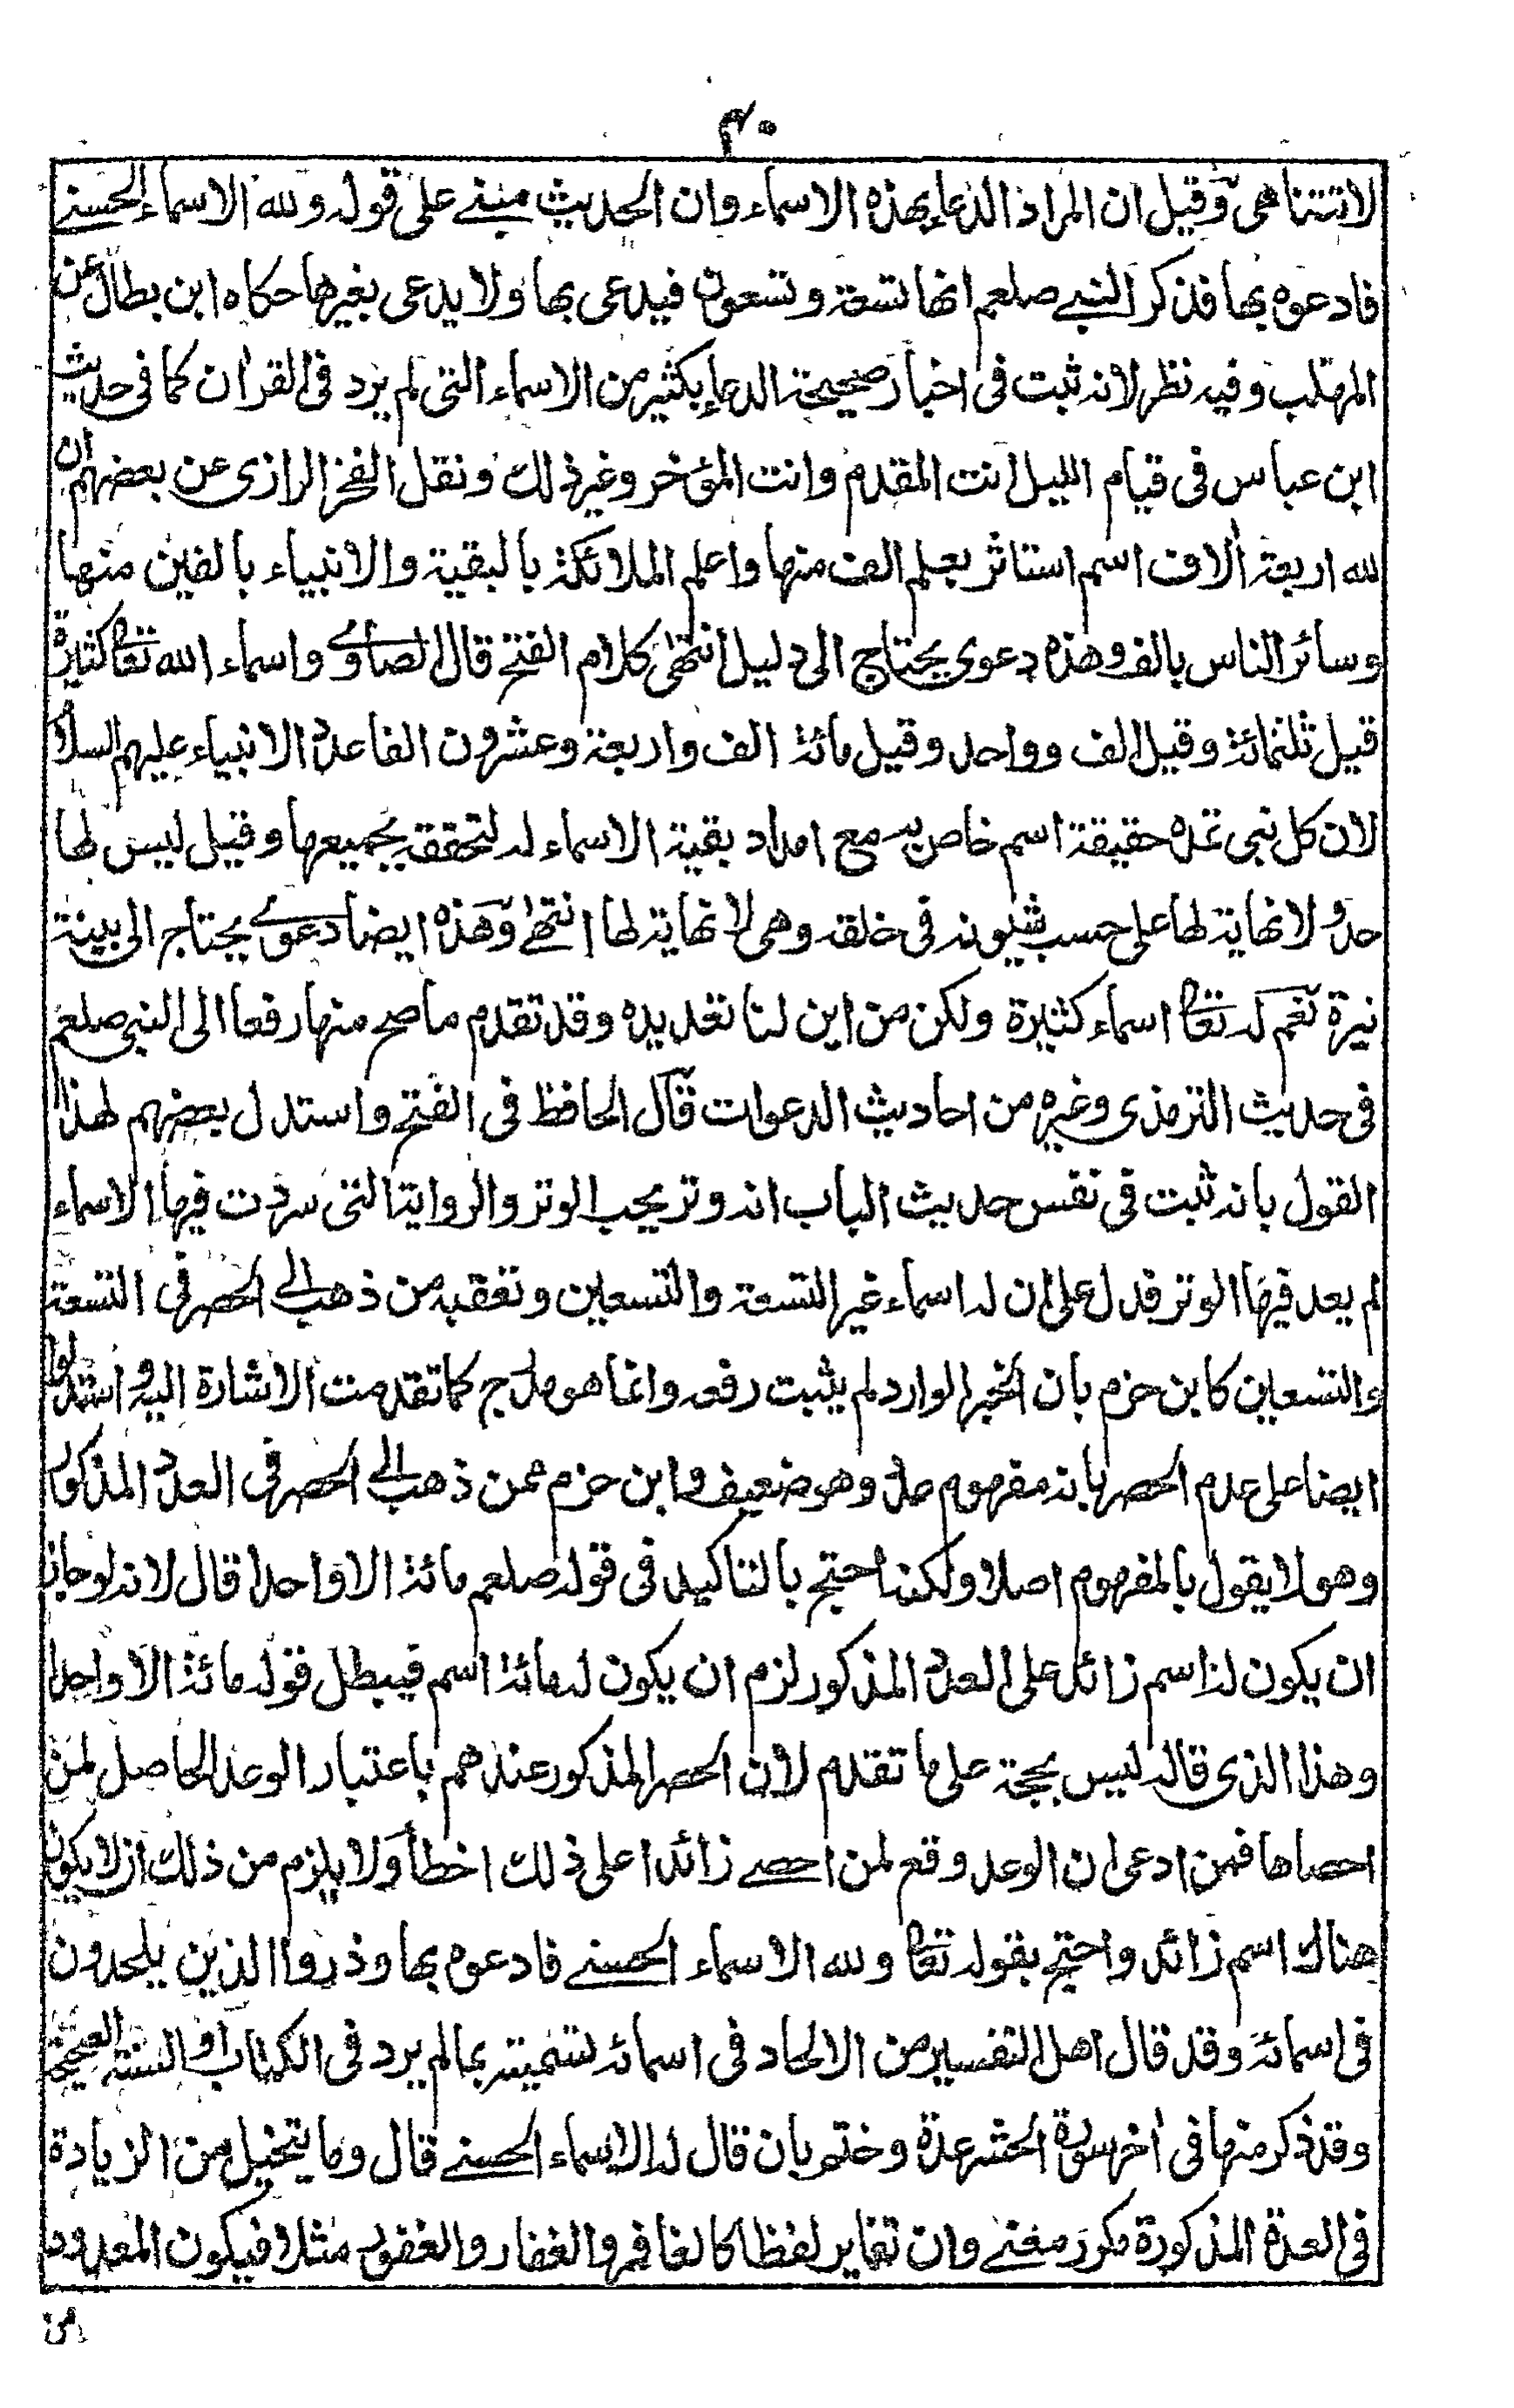 ۴۰
لاتتناهى وقيل ان المراد الدعاء بهذه الاسماء وان الحديث مبنى على قوله ولله الاسماء الحسنى
فادعوه بها فذكر النبى صلعم انها تسعة وتسعون فيدعى بها ولا يدعى بغيرها حكاه ابن بطال عن
المهلب وفيه نظر لانه ثبت فى اخبار صحيحة الدعاء بكثير من الاسماء التى لم يرد فى القراٰن كما فى حديث
ابن عباس فى قيام الليل انت المقدم وانت المؤخر وغير ذلك ونقل الفخر الرازى عن بعضهم ان
لله اربعة اٰلاف اسم استاثر بعلم الف منها واعلم الملائكة بالبقية والانبياء بالفين منها
وسائر الناس بالف وهذه دعوى يحتاج الى دليل انتهى كلام الفتح قال الصاوى واسماء الله تعا كثيرة
قيل ثلثمائة وقيل الف وواحد وقيل مائة الف واربعة وعشرون الفا عدد الانبياء عليهم السلام
لان كل نبى تمده حقيقة اسم خاص به مع امداد بقية الاسماء له لتحققه بجميعها وقيل ليس لها
حد ولا نهاية لها على حسب شيونه فى خلقه وهى لا نهاية لها انتهى وهذه ايضا دعوى يحتاج الى بينة
نيرة نعم له تعا اسماء كثيرة ولكن من اين لنا تعديده وقد تقدم ما صح منها رفعا الى النبى صلعم
فى حديث الترمذى وغيره من احاديث الدعوات قال الحافظ فى الفتح واستدل بعضهم لهذا
القول بانه ثبت فى نفس حديث الباب انه وتر يحب الوتر والرواية التى سردت فيها الاسماء
لم يعد فيها الوتر فدل على ان له اسماء غير التسعة والتسعين وتعقبه من ذهب الى الحصر فى التسعة
والتسعين كابن حزم بان الخبر الوارد لم يثبت رفعه وانما هو مدرج كما تقدمت الاشارة اليه واستدلوا
ايضا على عدم الحصر بانه مفهوم عدد وهو ضعيف وابن حزم ممن ذهب الى الحصر فى العدد المذكور
وهو لا يقول بالمفهوم اصلا ولكنه احتج بالتاكيد فى قوله صلعم مائة الا واحدا قال لانه لو جاز
ان يكون له اسم زائد على العدد المذكور لزم ان يكون له مائة اسم فيبطل قوله مائة الا واحدا
وهذا الذى قاله ليس بحجة على ما تقدم لان الحصر المذكور عندهم باعتبار الوعد الحاصل لمن
احصاها فمن ادعى ان الوعد وقع لمن احصى زائدا على ذلك اخطأ ولا يلزم من ذلك ان لا يكون
هناك اسم زائد واحتج بقوله تعا ولله الاسماء الحسنى فادعوه بها وذروا الذين يلحدون
فى اسمائه وقد قال اهل التفسير من الالحاد فى اسمائه تسميته بما لم يرد فى الكتاب او السنة الصحيحة
وقد ذكر منها فى اٰخر سورة الحشر عدة وختم بان قال له الاسماء الحسنى قال وما يتخيل من الزيادة
فى العدة المذكورة مكرر معنى وان تغاير لفظا كالغافر والغفار والغفور مثلا فيكون المعدود
من